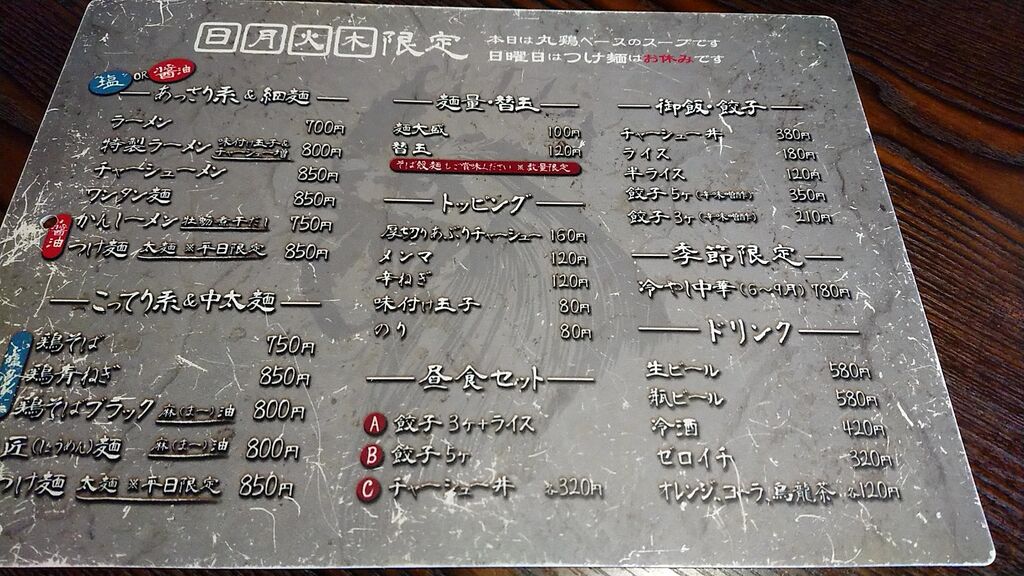 日月火木限定
本日は丸鶏ベースのスープです
日曜日はつけ麺はお休みです
塩 OR 醤油
あっさり系&細麺
ラーメン 700円
特製ラーメン 味付け玉子& チャーシュー増 800円
チャーシューメン 850円
ワンタン麺 850円
醤油
かんしーメン 750円
つけ麺 太麺 ※平日限定 850円
こってり系&中太麺
鶏そば 750円
鶏青ねぎ 850円
鶏そばブラック 麻(まー)油 800円
匠 麺 麻(まー)油 800円
つけ麺 太麺 ※平日限定 850円
麺量・替玉
麺大盛 100円
替玉 120円
そば殻麺もご賞味ください ※数量限定
トッピング
厚切りあぶりチャーシュー 160円
メンマ 120円
辛ねぎ 120円
味付け玉子 80円
のり 80円
昼食セット
A 餃子 3ヶ+ライス
B 餃子 5ヶ
C チャーシュー丼 各320円
御飯・餃子
チャーシュー丼 380円
ライス 180円
半ライス 120円
餃子 5ヶ(辛味噌付) 350円
餃子 3ヶ(辛味噌付) 210円
季節限定
冷やし中華(6〜9月) 780円
ドリンク
生ビール 580円
瓶ビール 580円
冷酒 420円
ゼロイチ 320円
オレンジ、コーラ、烏龍茶 各120円